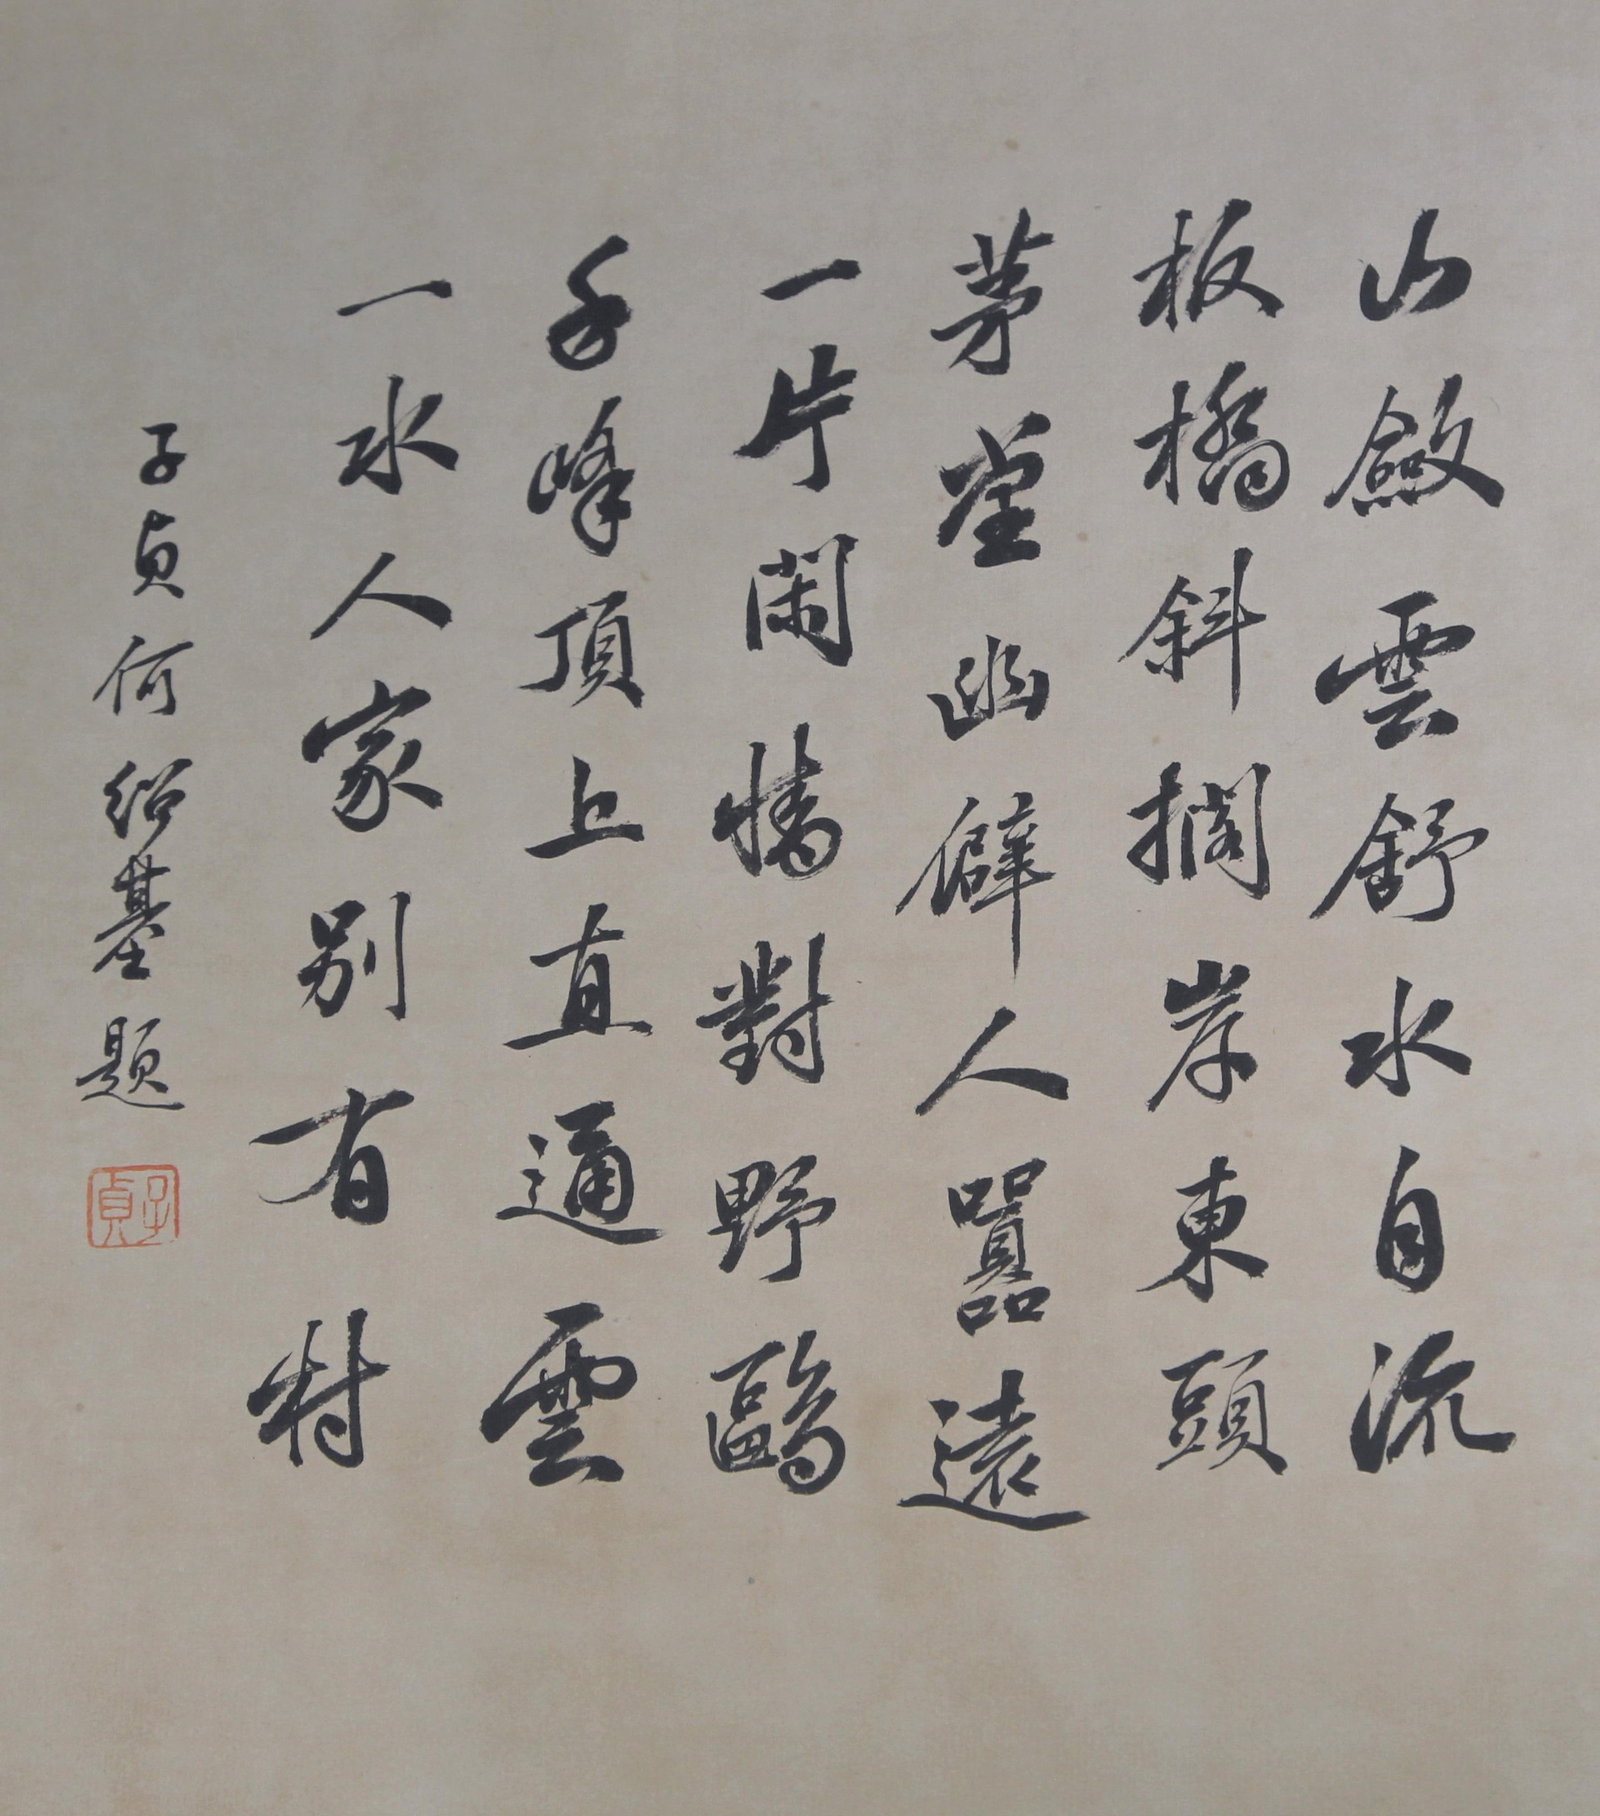 山斂雲舒水自流
板橋斜擱岸東頭
茅堂幽僻人囂遠
一片閑情對野鷗
千峰頂上直通雲
一水人家別有村
子貞何紹基題
子貞